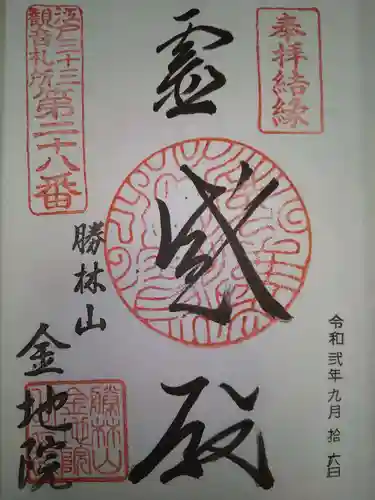 奉拝結縁
霊感殿
江戸三十三
観音札所
第二十八番
勝林山
金地院
勝林山
金地院
令和弐年九月拾六日